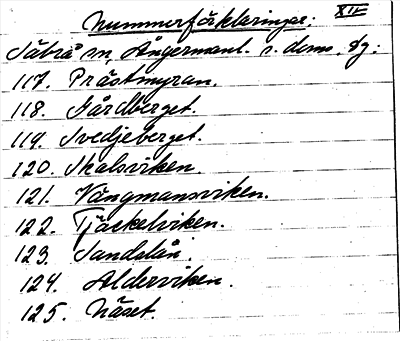 Nummerförklaringar: XIV
Säbrå sn, Ångermanl. s. doms. dg:
117. Prästmyran.
118. Gårdberget.
119. Svedjeberget.
120. Skalsviken.
121. Vångmansviken.
122. Tjäckelviken.
123. Sandslån.
124. Alderviken.
125. Näset.